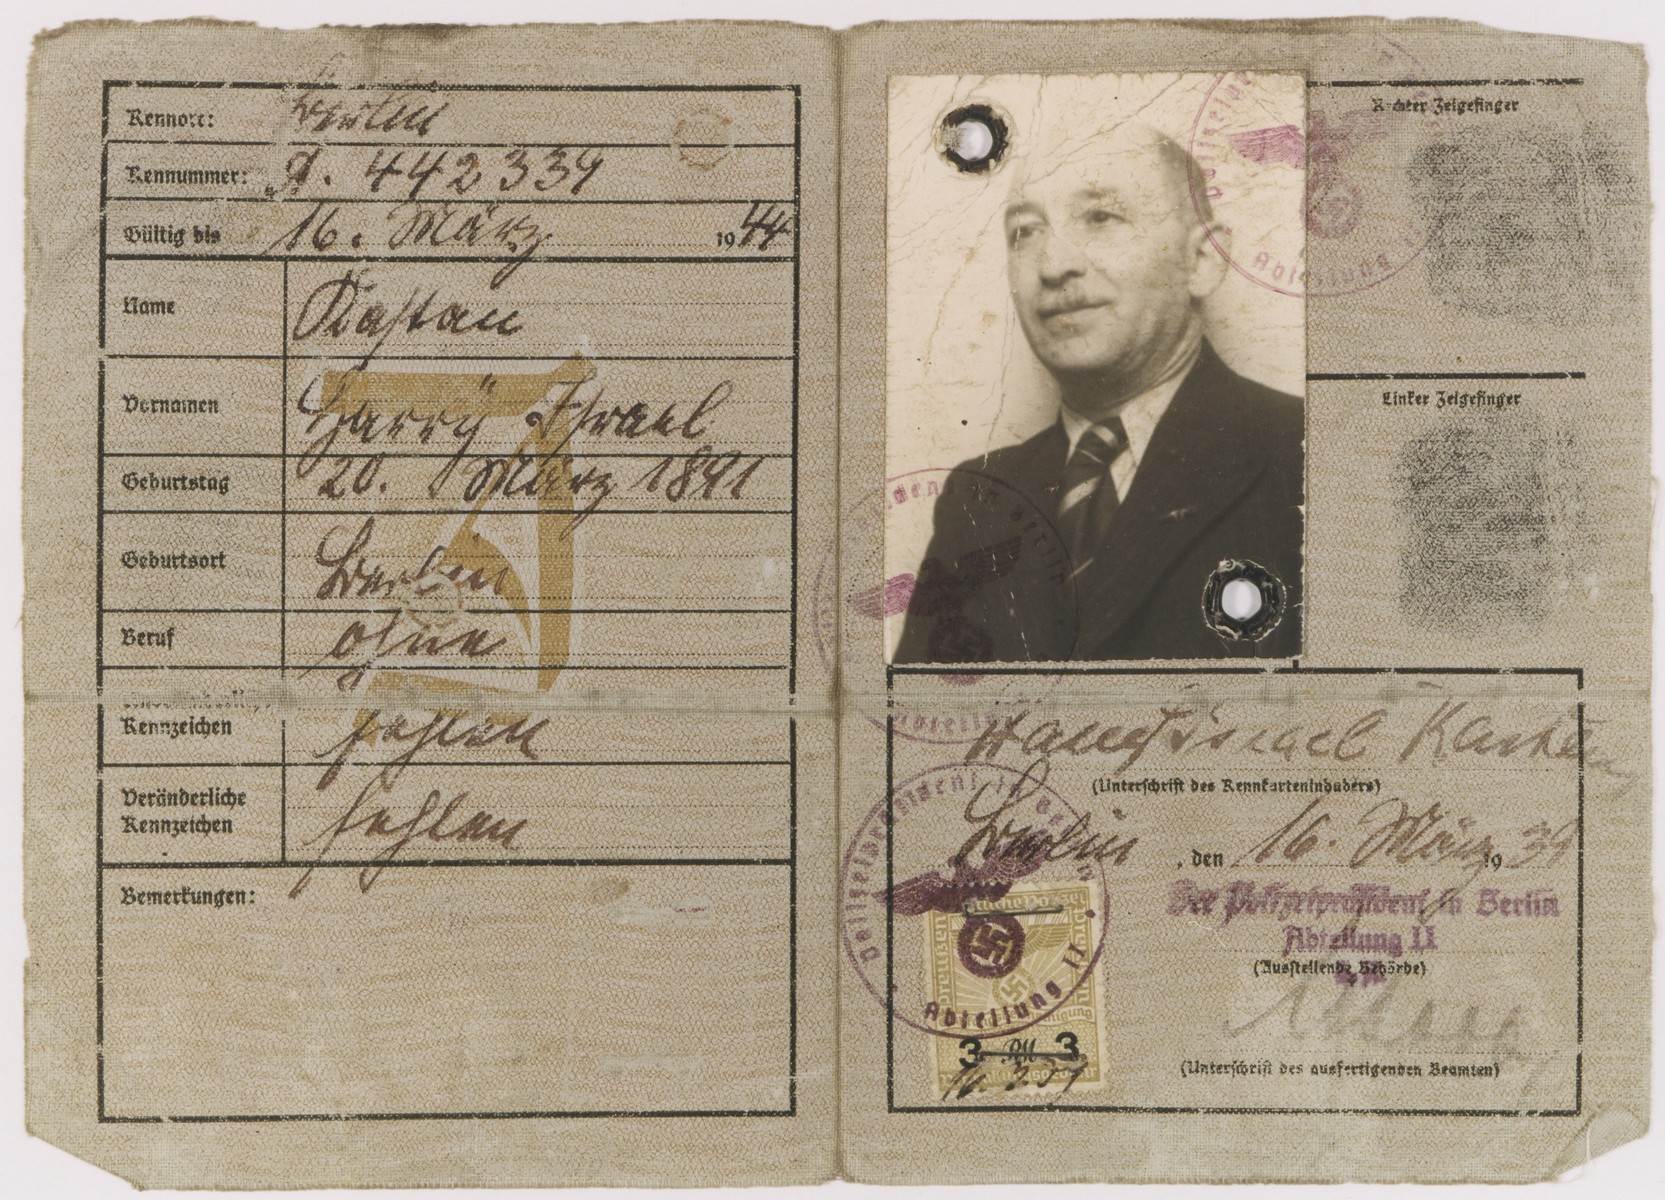 Kennort: Berlin
Kennummer: A. 442339
Gültig bis 16. März 1944
Name Kastan
Vornamen Harry Israel
Geburtstag 20. März 1891
Geburtsort Berlin
Beruf ohne
Kennzeichen fehlen
Veränderliche
Kennzeichen fehlen
Bemerkungen:
J
Rechter Zeigefinger
Linker Zeigefinger
Abteilung
Israel Kastan
(Unterschrift des Kennkarteninhabers)
Berlin, den 16. März 1939
Der Polizeipräsident in Berlin
Abteilung II
(Ausstellende Behörde)
(Unterschrift des ausfertigenden Beamten)
Polizeipräsident in Berlin
Abteilung II
Preussen
3 RM 3
16.3.39